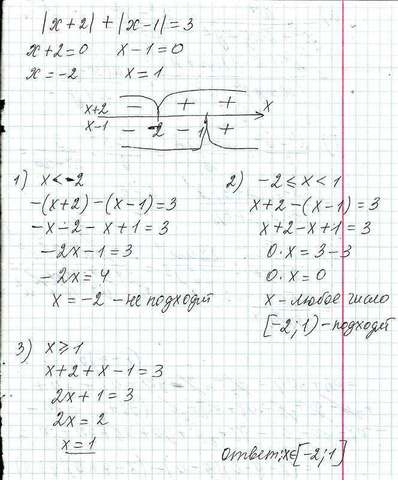 |x+2| + |x-1| = 3
x+2=0 x-1=0
x=-2 x=1
x+2 - + + x
x-1 - -2 - 1 +
1) x<-2
-(x+2)-(x-1)=3
-x-2-x+1=3
-2x-1=3
-2x=4
x=-2 - не подходит
2) -2≤x<1
x+2-(x-1)=3
x+2-x+1=3
0·x=3-3
0·x=0
x-любое число
[-2;1)-подходит
3) x≥1
x+2+x-1=3
2x+1=3
2x=2
x=1
ответ: x∈[-2;1]